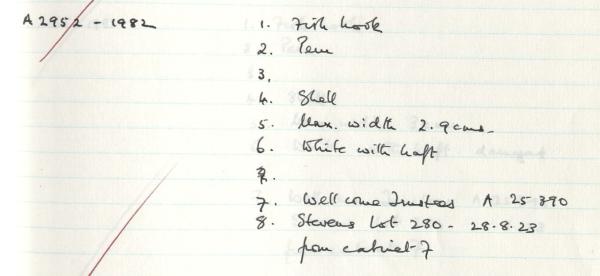 A 2952 - 1982
1. Fish hook
2. Peru
3.
4. Shell
5. Max. width 2.9cms.
6. White with haft
7.
7. Wellcome Trustees A 25390
8. Stevens Lot 280 - 28.8.23
from cabinet 7